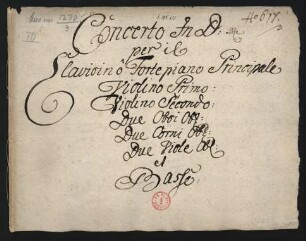 Concerto In D:
per il
Clavicin ô Fortepiano Principale
Violino Primo:
Violino Secondo:
Due Oboi Obl:
Due Corni Obl:
Due Viole Obl
et
Basso: